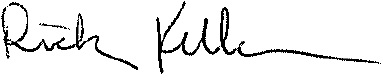 Rick Keller